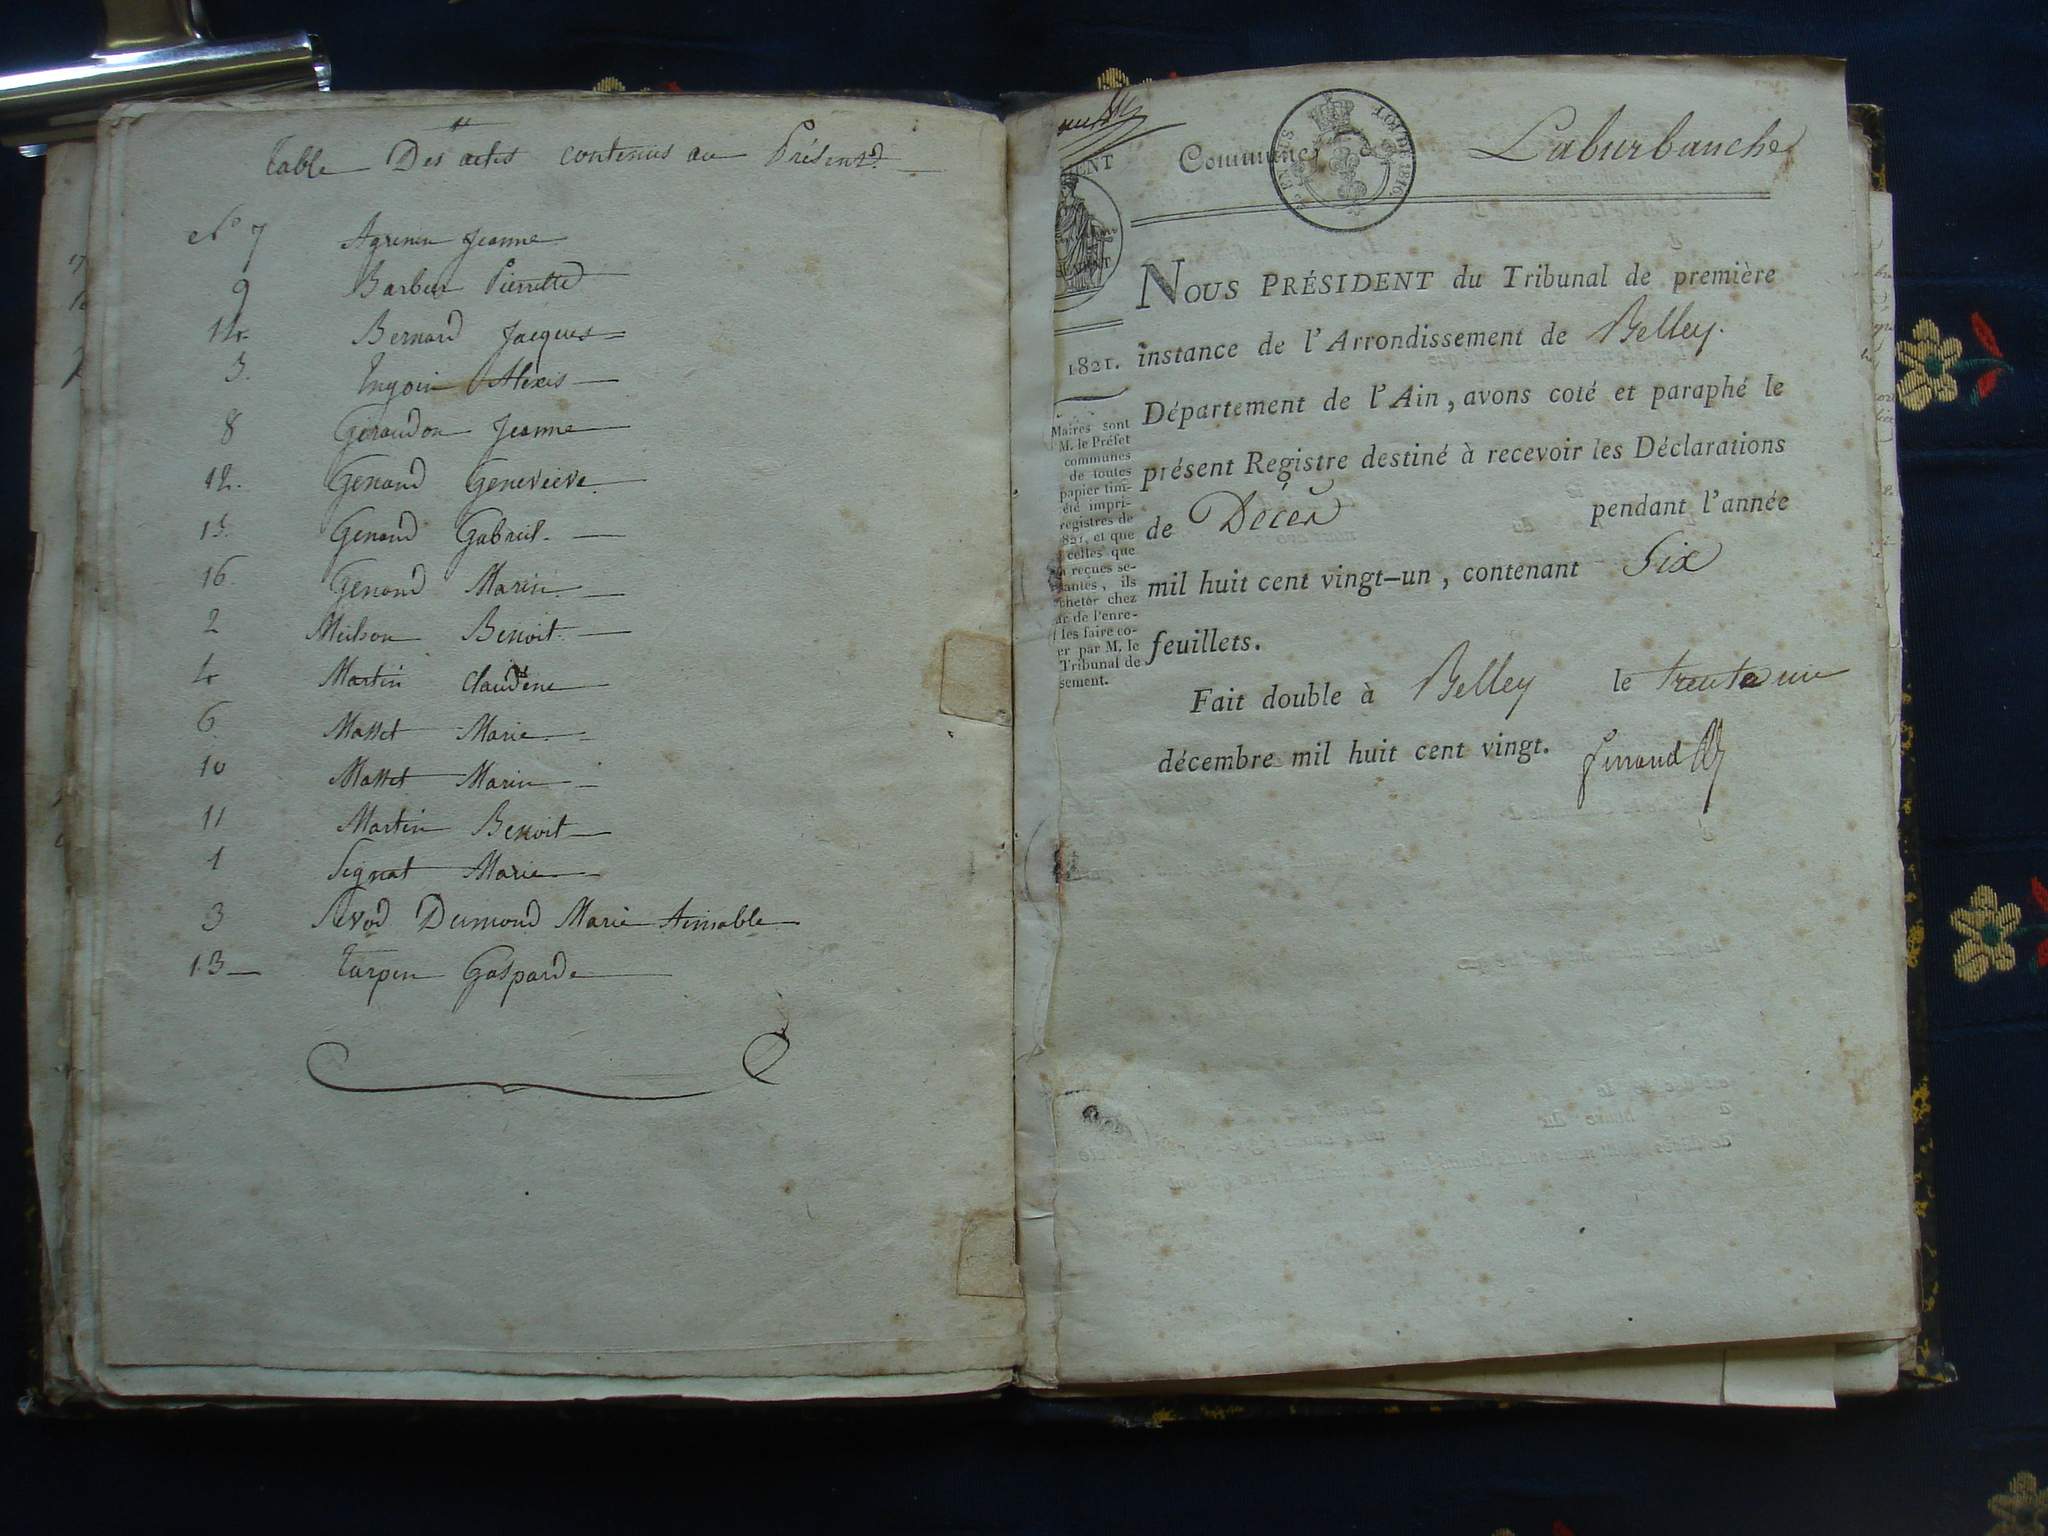 Table Des actes contenus au Présent
N° 7 Agrenen Jeanne
9 Barbier Pierrette
14. Bernard Jacques
3. Alexis
8 Geraudon Jeanne
12. Genoud Genevieve
15. Genoud Gabriel.
16. Genoud Marie.
2 Benoit.
4 Martin Claudene
6. Masset Marie.
10 Masset Marie
11 Martin Benoit
1 Signat Marie
3 Sevod Dumond Marie Aimable
13 Turpin Gasparde
Commune de Laburbanche
LOI DE 1816.
NOUS PRÉSIDENT du Tribunal de première
instance de l'Arrondissement de Belley.
Département de l'Ain, avons coté et paraphé le
présent Registre destiné à recevoir les Déclarations
de Décès pendant l'année
mil huit cent vingt-un, contenant Six
feuillets.
Fait double à Belley le trente un
décembre mil huit cent vingt.
1821.
Maires sont
M. le Préfet
communes
de toutes
papier tim-
été impri-
registres de
821, et que
celles que
reçues se-
antes, ils
cheter chez
ar de l'enre-
les faire co-
er par M. le
Tribunal de
sement.